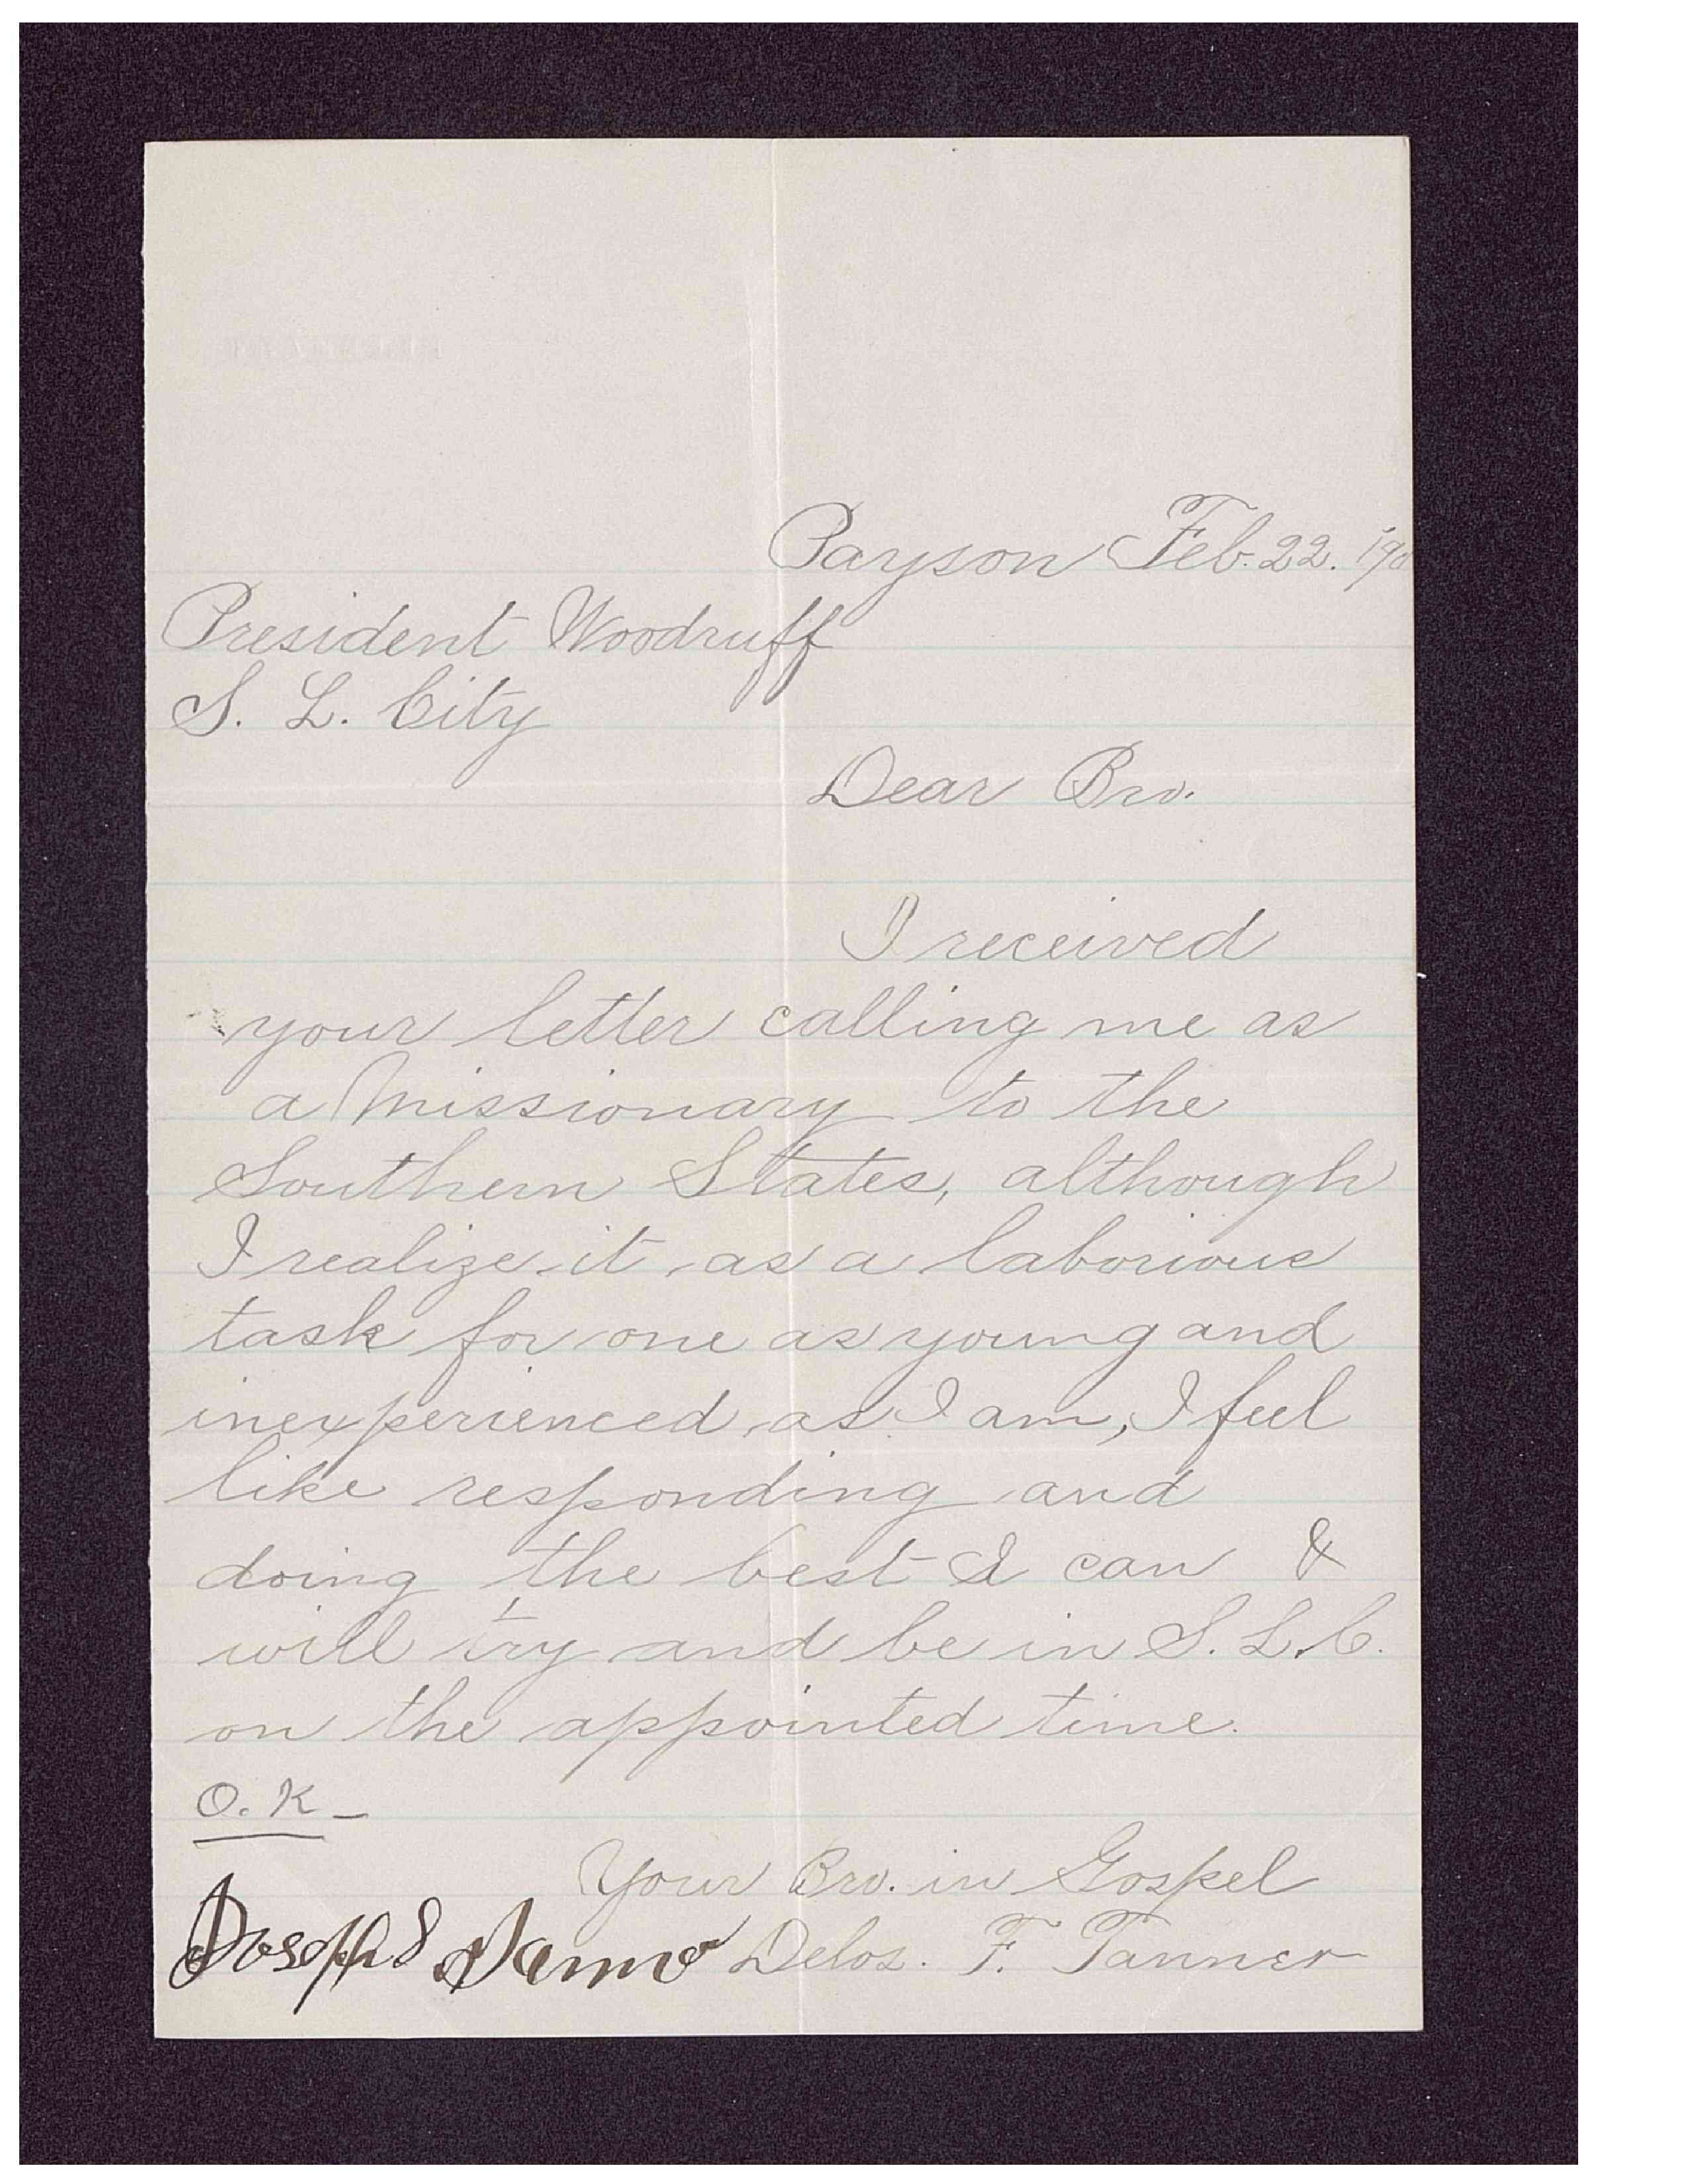 Payson Feb. 22.
President Woodruff
S. L. City
Dear Bro.
I received
your letter calling me as
a Missionary to the
Southern States, although
I realize it as a laborious
task for one as young and
inexperienced as I am, I feel
like responding and
doing the best I can &
will try and be in S. L. C.
on the appointed time.
O. K_
Your Bro. in Gospel
Joseph S Delos. F. Tanner